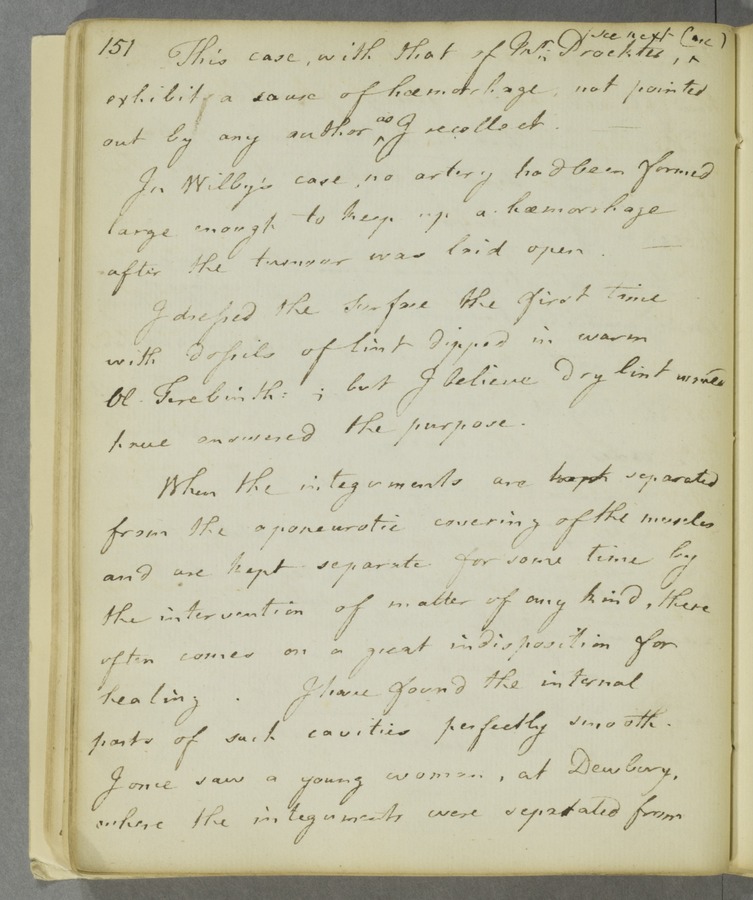 151
(see next case)
This case, with that of Mr. Prockter, ^
exhibits a cause of hœmorrhage, not pointed
out by any author ^as I recollect. —
In Wilby's case, no artery had been formed
large enough to keep up a hœmorrhage
after the tumour was laid open. —
I dressed the surface the first time
with dossils of lint dipped in warm
Ol. Terebinth: ; but I believe dry lint would
have answered the purpose.
When the integuments are kept separated
from the aponeurotic covering of the muscles
and are kept separate for some time by
the intervention of matter of any kind, there
often comes on a great indisposition for
healing. I have found the internal
parts of such cavities perfectly smooth.
I once saw a young woman, at Dewsbury,
where the integuments were separated from